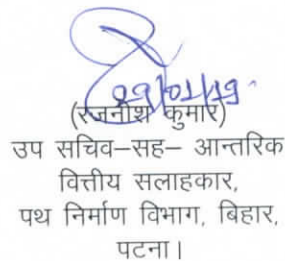 (रजनीश कुमार)
उप सचिव–सह– आन्तरिक
वित्तीय सलाहकार,
पथ निर्माण विभाग, बिहार,
पटना।